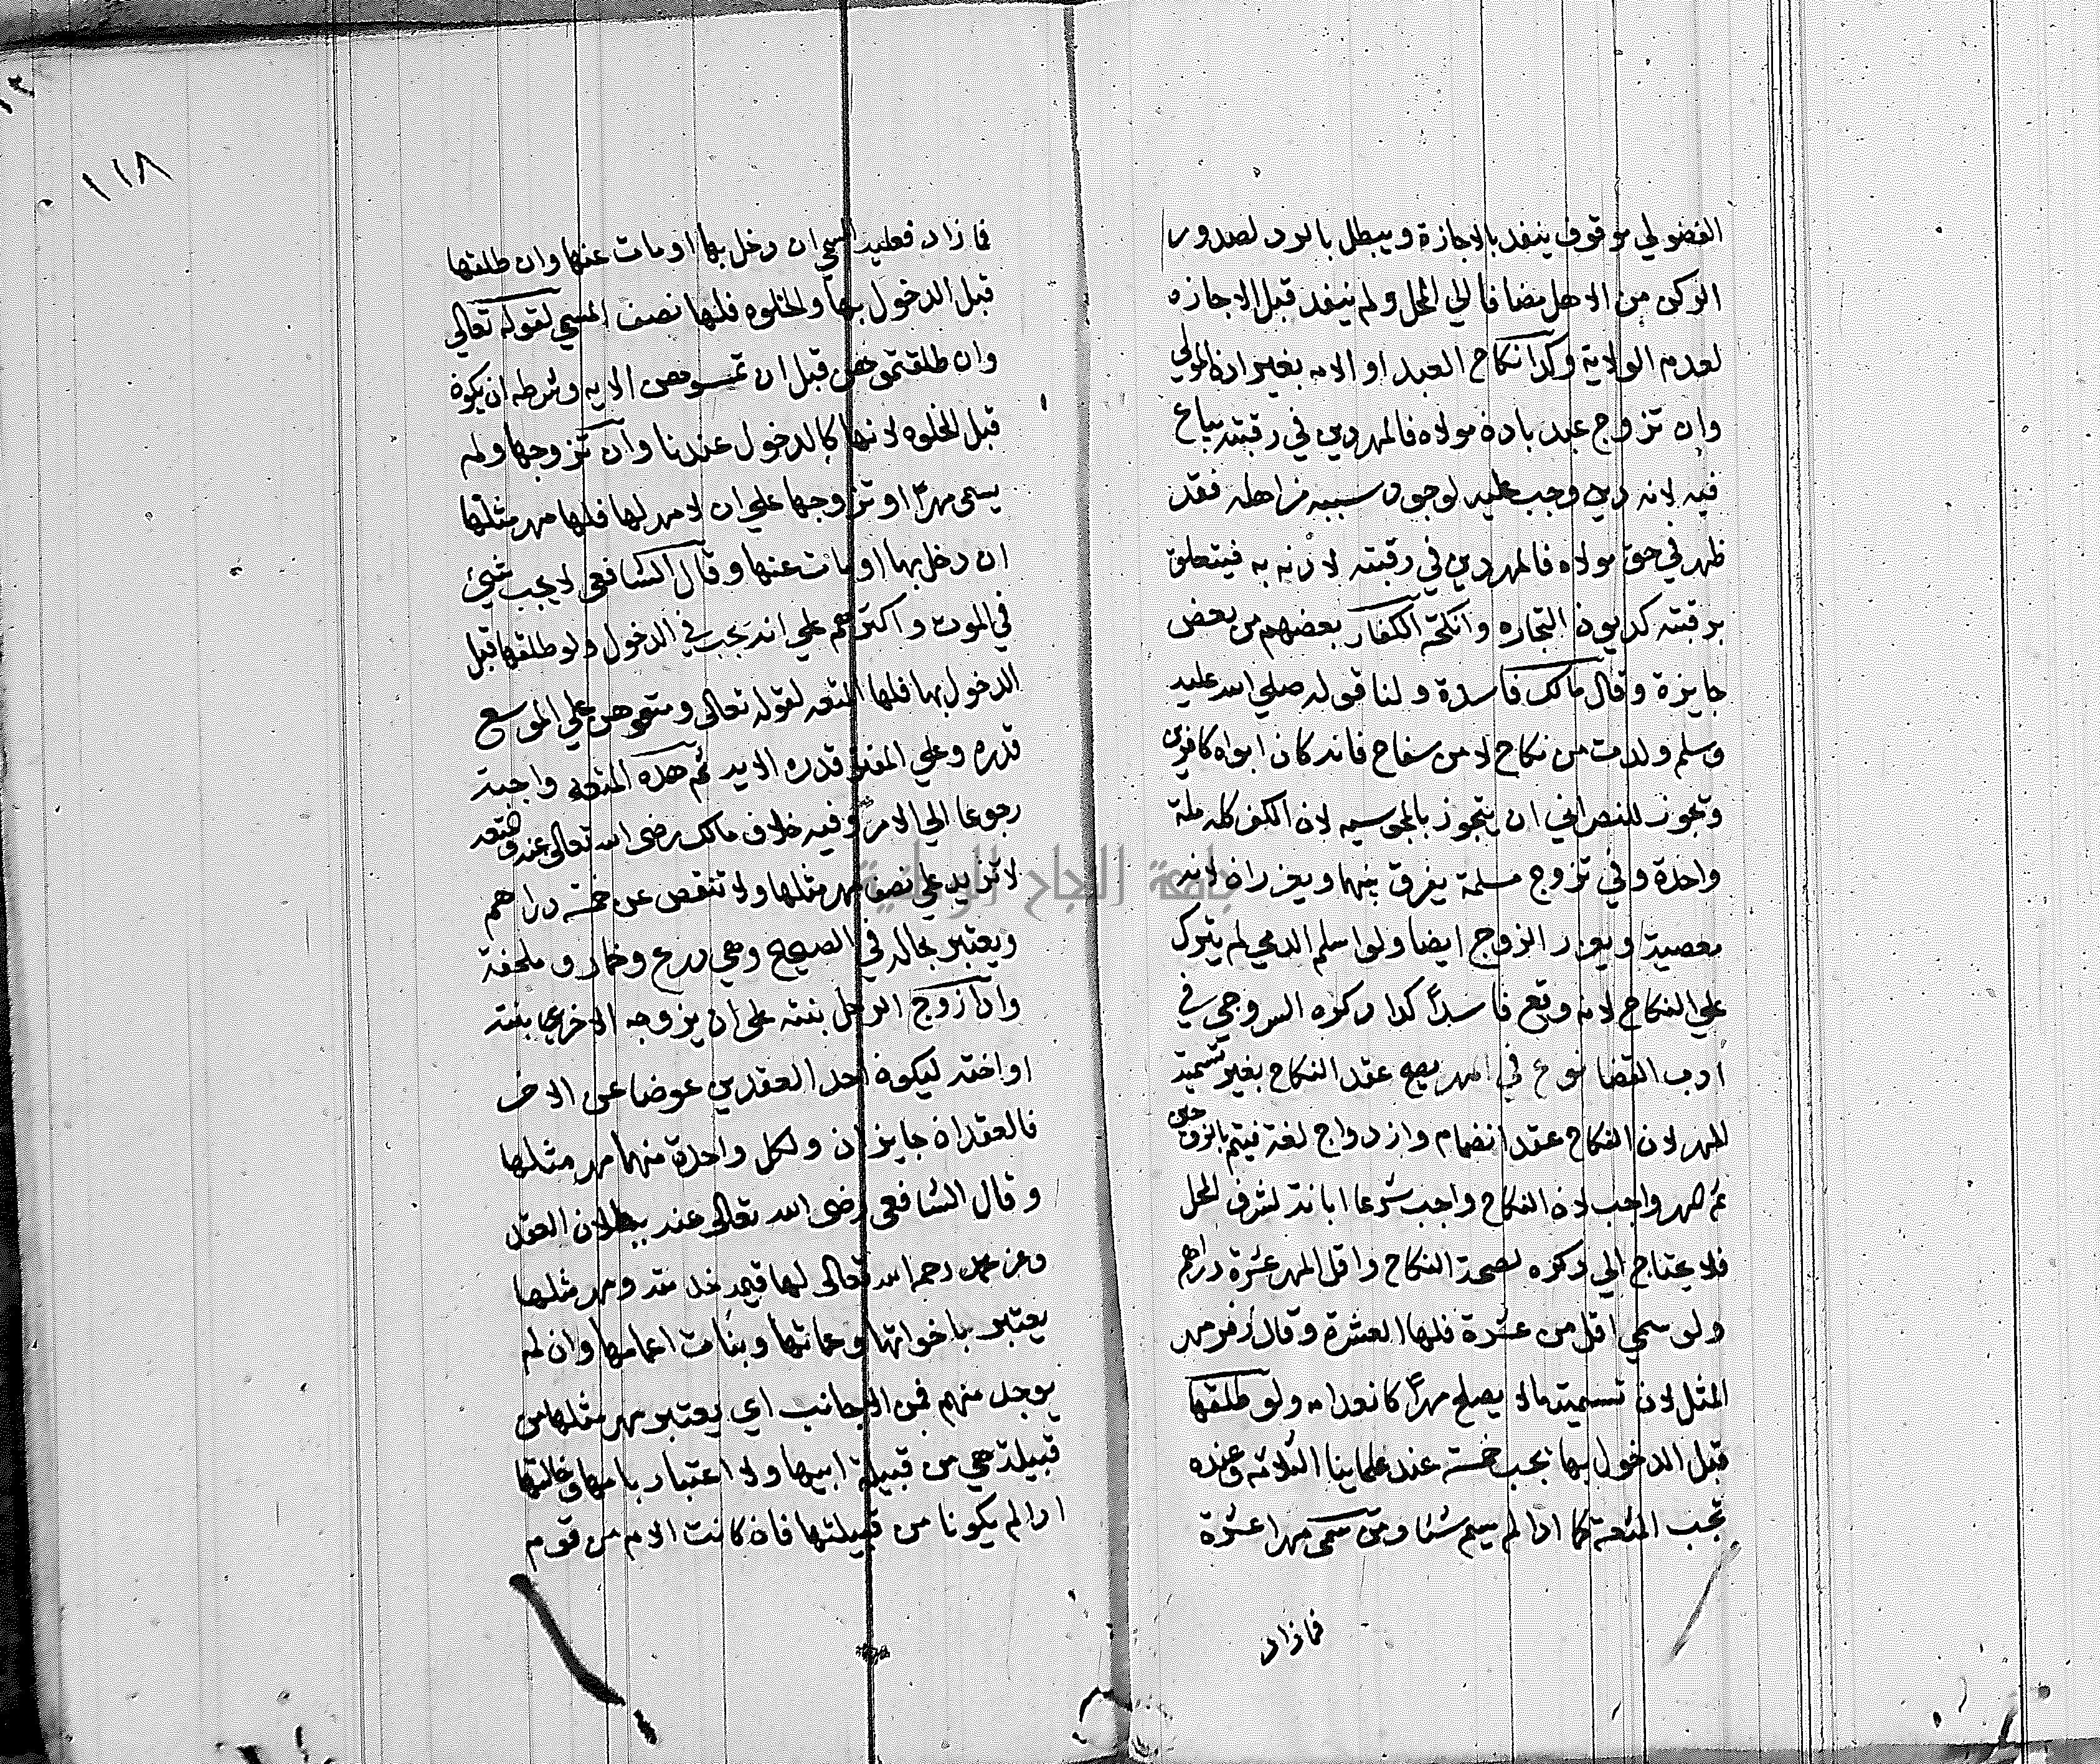 الفضولي موقوف ينفد بالاجازة ويبطل بالرد لصدور
الركن من الاهل مضافا لي المحل ولم ينفد قبل الاجازه
لعدم الولاية وكدا نكاح العبد او الامه بغير ادن المولي
وان تزوج عبد بادن مولاه فالمهر دين في رقبته يباع
فيه لانه دين وجب عليه لوجود سببه من اهله فقد
ظهر في حق مولاه فالمهر دين في رقبته لاذنه به فيتعلق
برقبته كديون التجاره وانكحة الكفار بعضهم من بعض
جايزة وقال مالك فاسدة ولنا قوله صلي الله عليه
وسلم ولدت من نكاح لا من سفاح فانه كان ابواه كافرين
وتجوز للنصراني ان يتجوز بالمجوسيه لان الكفر كله ملة
واحدة وفي تزوج مسلمة يفرق بينهما ويعزران لانه
معصية ويعزر الزوج ايضا ولو اسلم الدمي لم يترك
علي النكاح لانه وقع فاسداً كدا دكره السروجي في
ادب القضا نوع في المهر يصح عقد النكاح بغير تسمية
المهر لان النكاح عقد انضمام وازدواج لغة فيتم بالزوجين
ثم المهر واجب لان النكاح واجب شرعا ابانة لشرف المحل
فلا يحتاج الي دكره لصحة النكاح واقل المهر عشرة دراهم
ولو سمي اقل من عشرة فلها العشرة وقال زفر مهر
المثل لان تسمية ما لا يصلح مهراً كانعدامه ولو طلقها
قبل الدخول بها تجب خمسة عند علماينا الثلاثه وعنده
تجب المتعة كما ادا لم يسم شئا ومن سمى مهرا عشرة
فما زاد
١١٨
فما زاد فعليه المسمي ان دخل بها او مات عنها وان طلقها
قبل الدخول بها والخلوه فلها نصف المسمي لقوله تعالي
وان طلقتموهن قبل ان تمسوهن الايه وشرطه ان يكون
قبل الخلوه لانها كالدخول عندنا وان تزوجها ولم
يسمى مهراً او تزوجها علي ان لا مهر لها فلها مهر مثلها
ان دخل بها او مات عنها وقال الشافعي لا يجب شيئ
في الموت واكترهم علي انه يجب في الدخول ولو طلقها قبل
الدخول بها فلها المتعه لقوله تعالى ومتعوهن علي الموسع
قدره وعلي المقتر قدره الايه ثم هده المتعه واجبة
رجوعا الي الامر وفيه خلاف مالك رضى الله تعالى عنه ومتعه
لا تزيد علي نصف مهر مثلها ولا تنقص عن خمسة دراهم
ويعتبر بحاله في الصحيح وهي درع وخمار وملحفة
وادا زوج الرجل بنته على ان يزوجه الاخر بنته
او اخته ليكون احد العقدين عوضا عن الاخر
فالعقدان جايزان ولكل واحدة منهما مهر مثلها
وقال الشافعى رضى الله تعالى عنه ببطلان العقد
وعن محمد رحمه الله تعالى لها قيمة خدمته ومهر مثلها
يعتبر باخواتها وعماتها وبنات اعمامها وان لم
يوجد منهم فمن الاجانب اي يعتبر مهر مثلها من
قبيلة هي من قبيلة ابيها ولا اعتبار بامها وخالتها
ادا لم يكونا من قبيلتها فان كانت الام من قوم
جامعة النجاح الوطنية